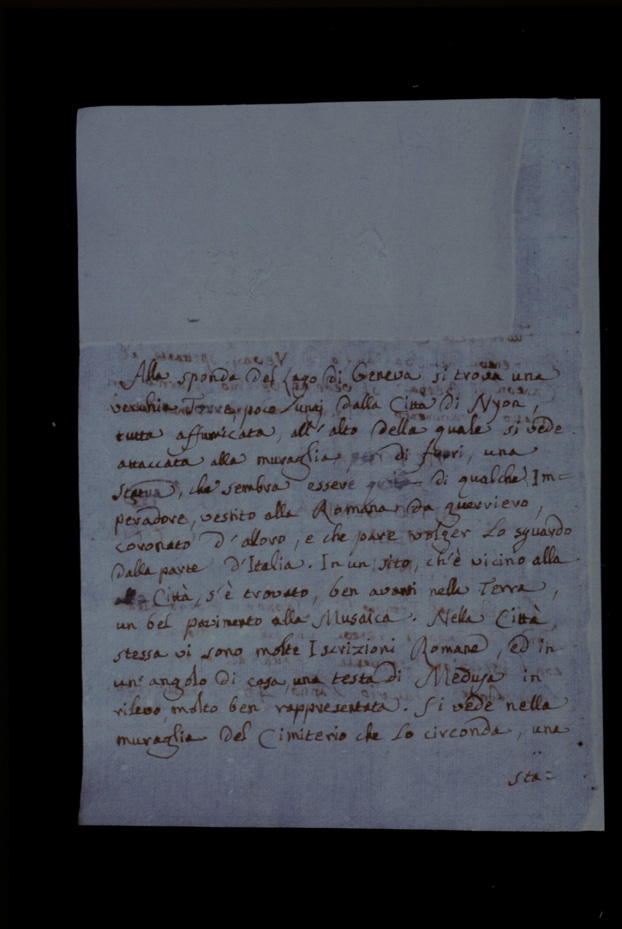 Alla sponda del Lago di Geneva si trova una
vecchia Torre, poco lungi dalla Città di Nyon,
tutta affumicata, all'alto della quale si vede
attaccata alla muraglia di fuori, una
statua, che sembra essere di qualche Im=
peradore, vestito alla Romana da guerriero,
coronato d'alloro, e che pare volger lo sguardo
dalla parte d'Italia. In un sito, ch'è vicino alla
Città, s'è trovato, ben avanti nella Terra,
un bel pavimento alla Musaica. Nella Città
stessa vi sono molte Iscrizioni Romane, ed in
un' angolo di casa una testa di Medusa in
rilevo molto ben rappresentata. Si vede nella
muraglia del Cimiterio che lo circonda, una
sta=